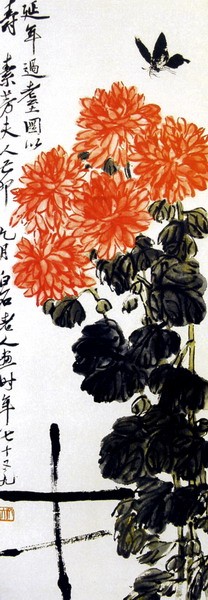 延年過耋圖以
壽 素芳夫人己卯九月白石老人画时年七十又九